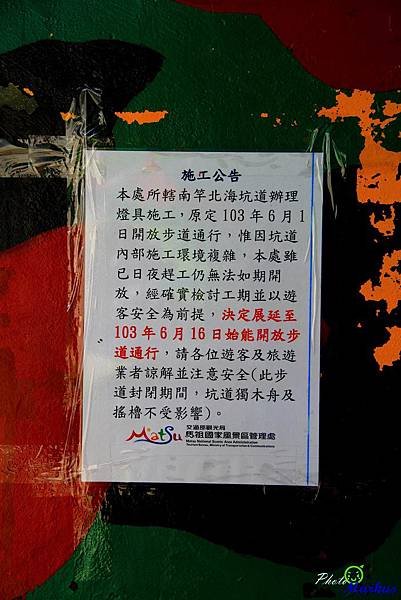 施工公告
本處所轄南竿北海坑道辦理
燈具施工，原定 103 年 6 月 1
日開放步道通行，惟因坑道
內部施工環境複雜，本處雖
已日夜趕工仍無法如期開
放，經確實檢討工期並以遊
客安全為前提，決定展延至
103 年 6 月 16 日始能開放步
道通行，請各位遊客及旅遊
業者諒解並注意安全(此步
道封閉期間，坑道獨木舟及
搖櫓不受影響)。
Matsu
交通部觀光局
馬祖國家風景區管理處
Matsu National Scenic Area Administration
Tourism Bureau, Ministry of Transportation & Communications
Photo
Markus